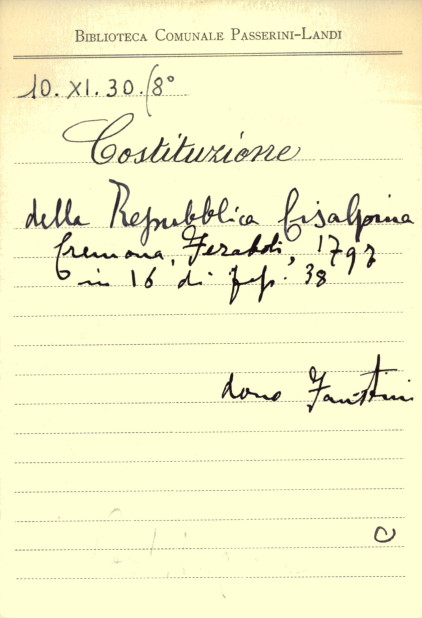 BIBLIOTECA COMUNALE PASSERINI-LANDI
10. XI. 30. (8°
Costituzione
della Repubblica Cisalpina
Cremona, Feraboli, 1797
in 16 di pp. 38
dono Faustini